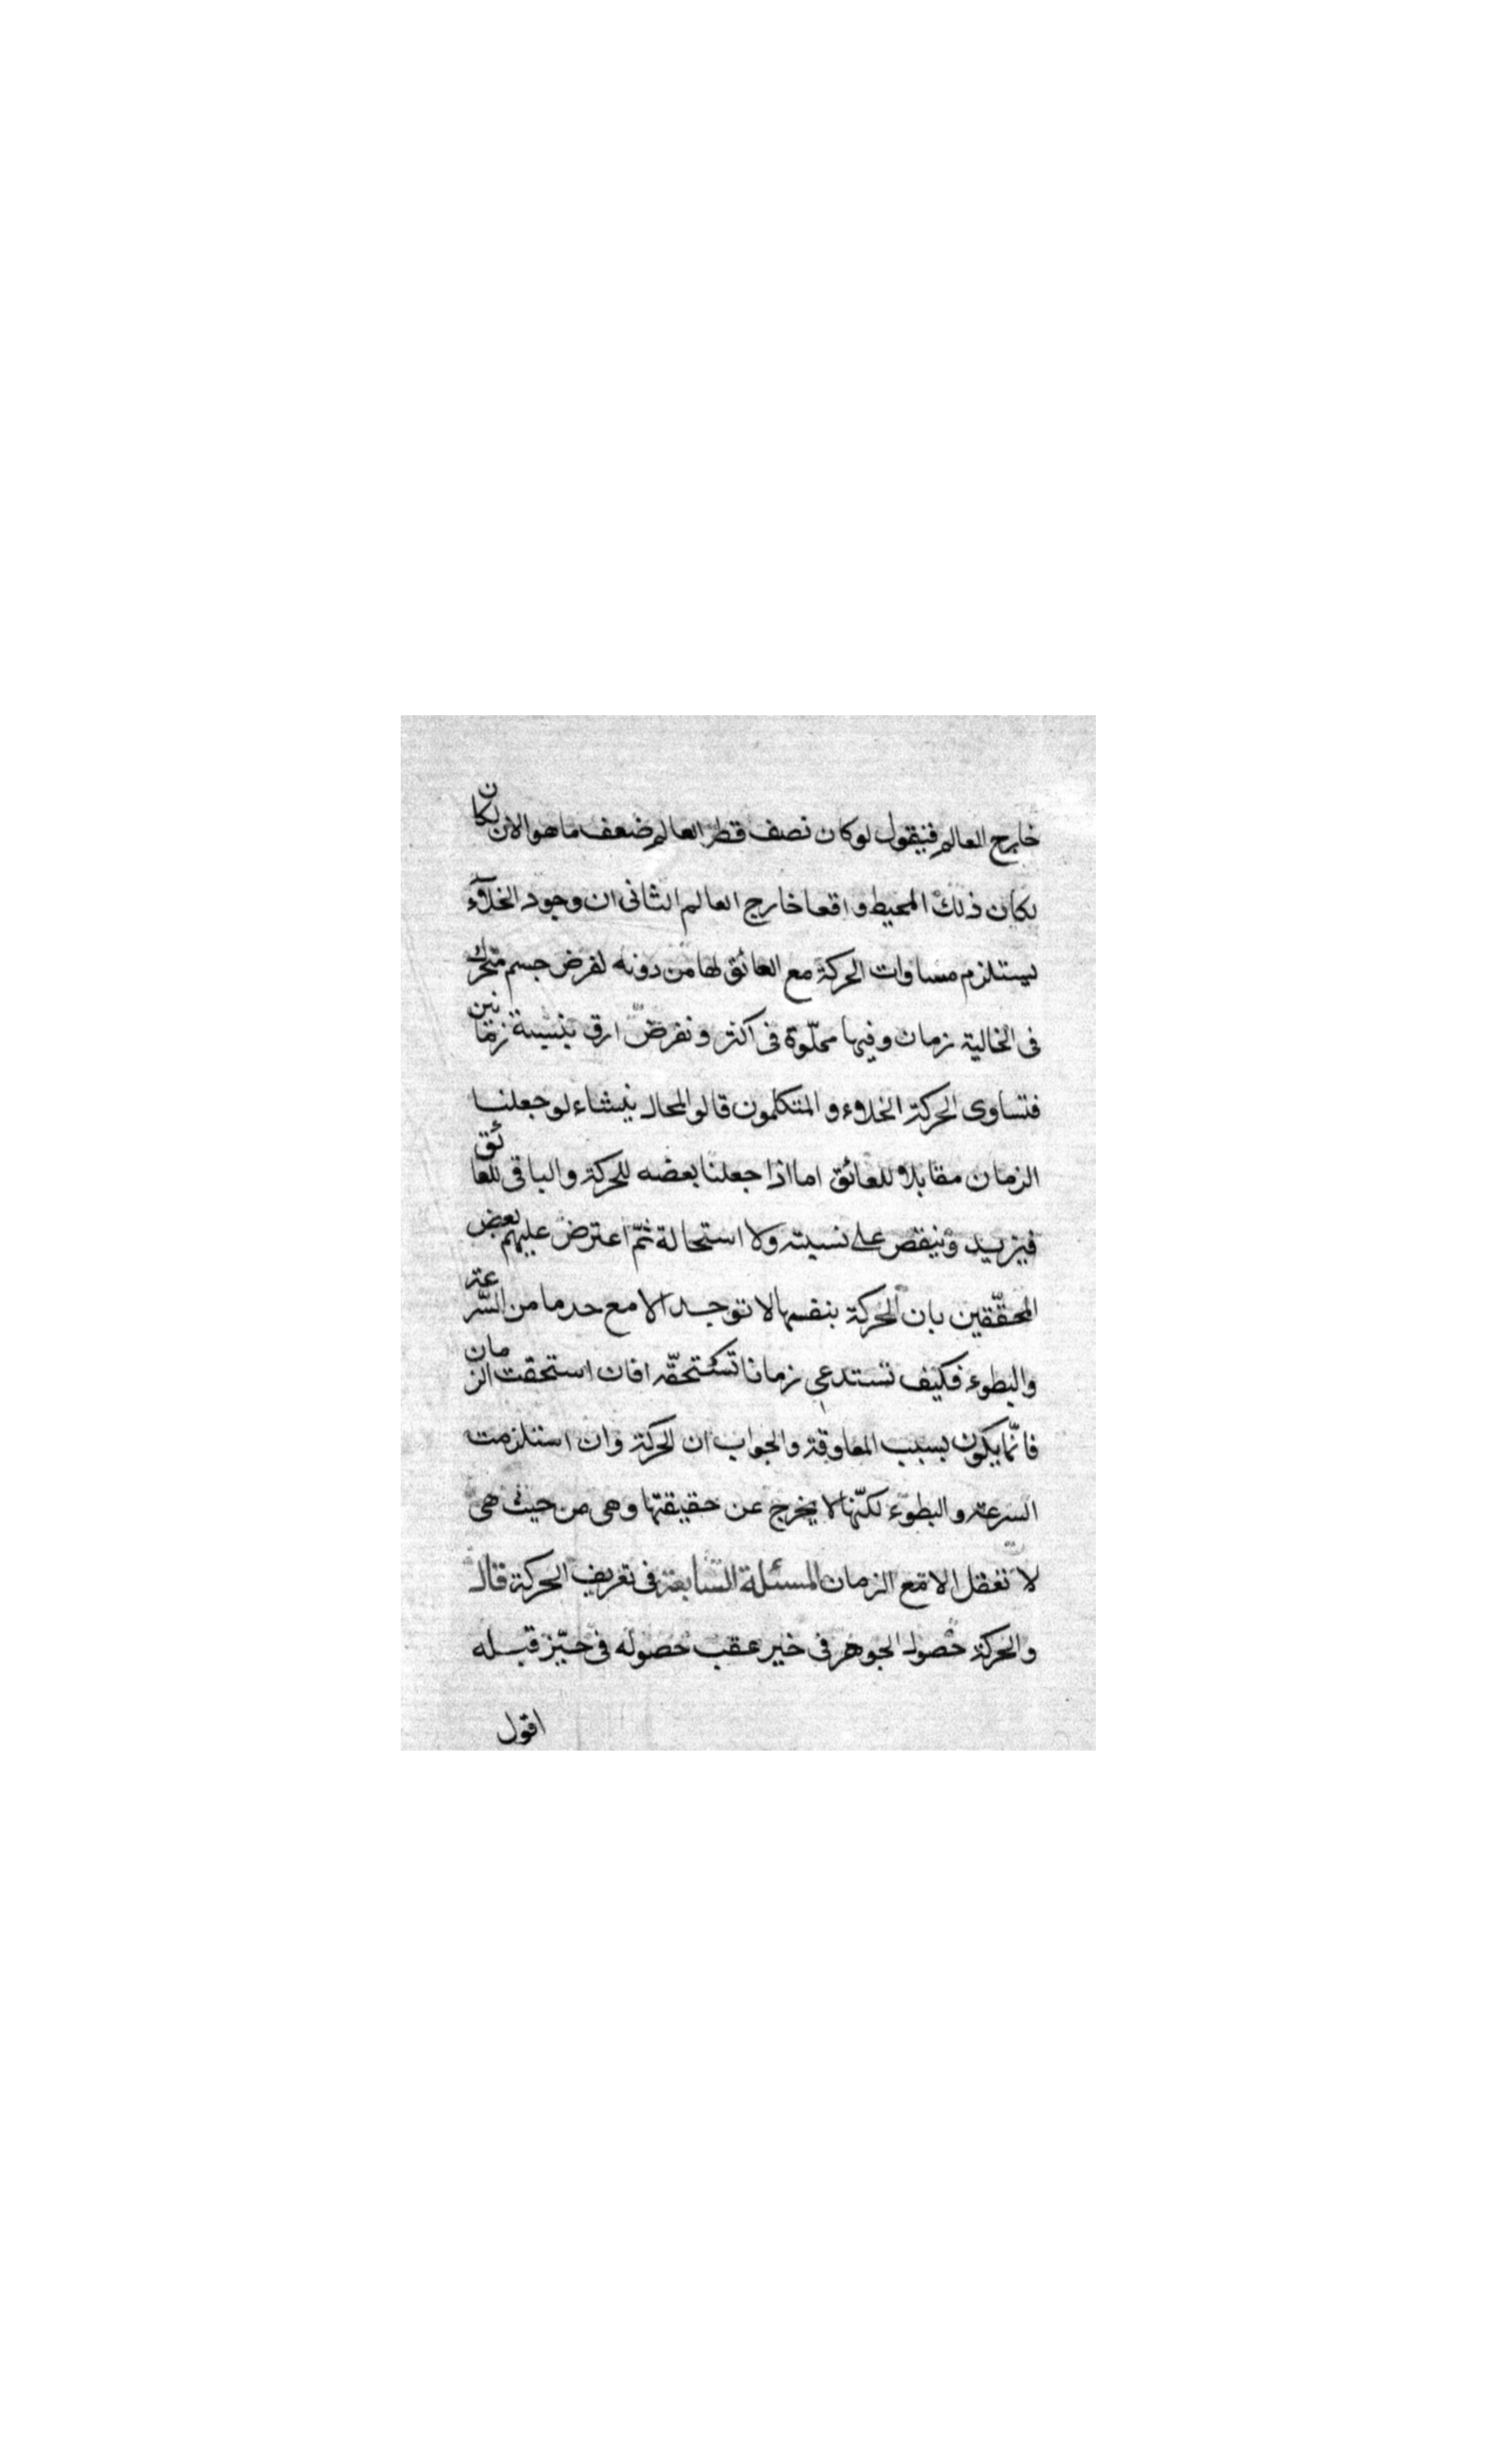 خارج العالم فنيقول لو كان نصف قطر العالم ضعف ما هو الان لكان
لكان ذلك المحيط واقعا خارج العالم الثانى ان وجود الخلاء
يستلزم مساوات الحركة مع العائق لها من دونه لفرض جسم متحرك
فى الخالية زمان وفيها مملوة فى اكثر ونفرض ارق بنسبة زمانين
فتساوى الحركة الخلاء والمتكلمون قالوا المحال ينشاء لو جعلنا
الزمان مقابلا للعائق اما اذا جعلنا بعضه للحركة والباقى للعائق
فيزيد وينقص على نسبته ولا استحالة ثمّ اعترض عليهم بعض
المحقّقين بان الحركة بنفسها لا توجد الا مع حد ما من السّرعة
والبطوء فكيف تستدعى زمانا تستحقّه افان استحقت الزمان
فانّما يكون بسبب المعاوقة والجواب ان الحركة وان استلزمت
السرعة والبطوء لكنّها لا يخرج عن حقيقتها وهى من حيث هى
لا تعقل الا مع الزمان المسئلة السابعة فى تعريف الحركة قال
والحركة حصول الجوهر فى خير عقب حصوله فى حيّز قبله
اقول